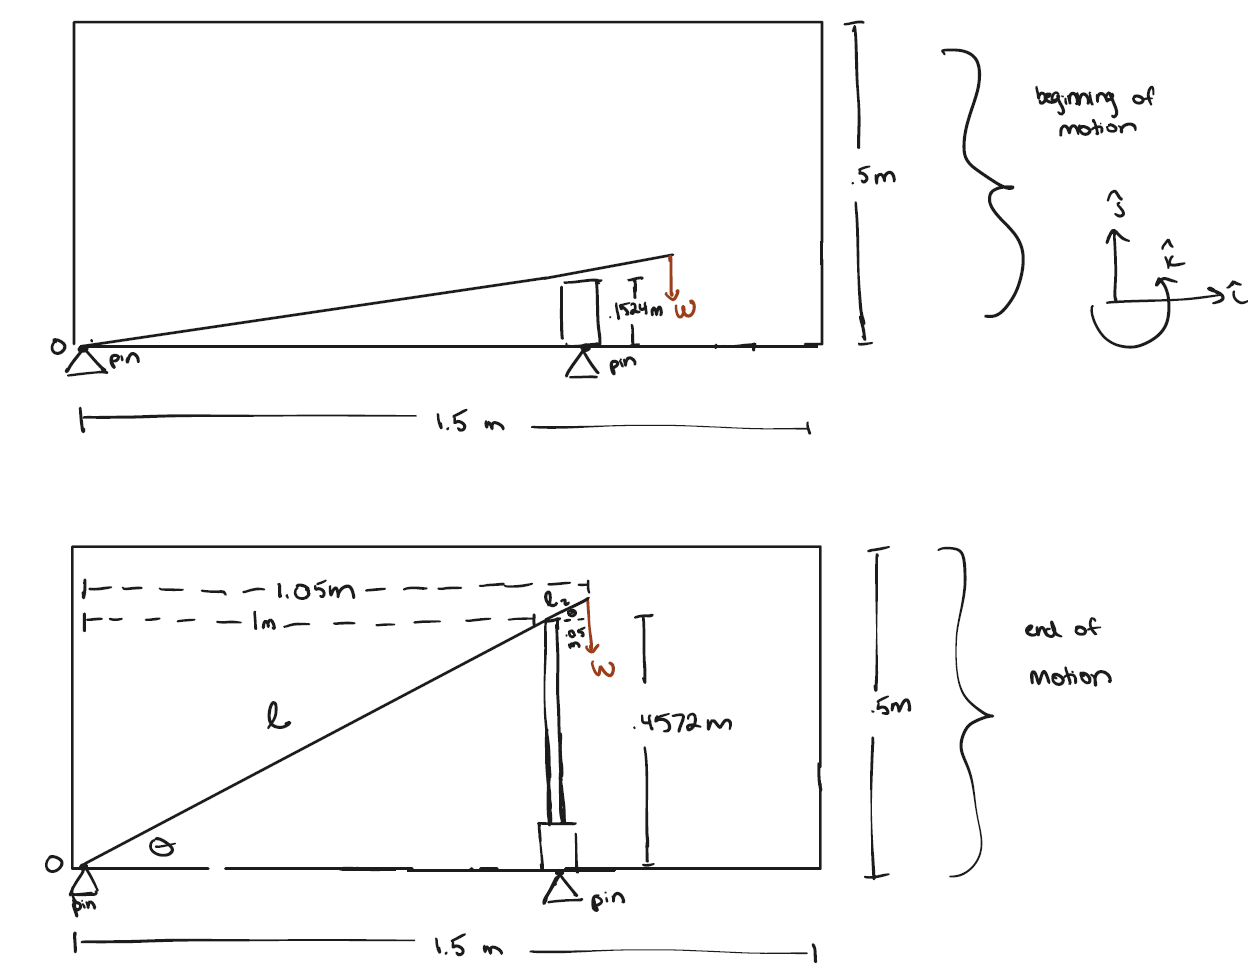 .5m
beginning of
motion
ĵ
k̂
î
.1524m
W
O
pin
pin
1.5 m
1.05m
l₂
θ
1m
.05
m
W
l
.4572m
.5m
end of
motion
θ
O
pin
pin
1.5 m